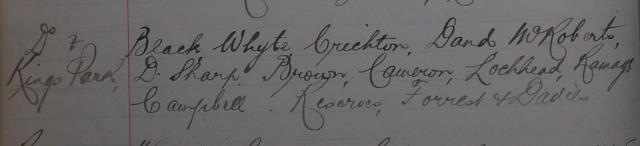 Do v Black Whyte Crichton, Dand McRoberts,
Kings Park, D. Sharp Brown, Cameron, Lochhead, Ramage
Campbell. Reserves, Forrest & Davies